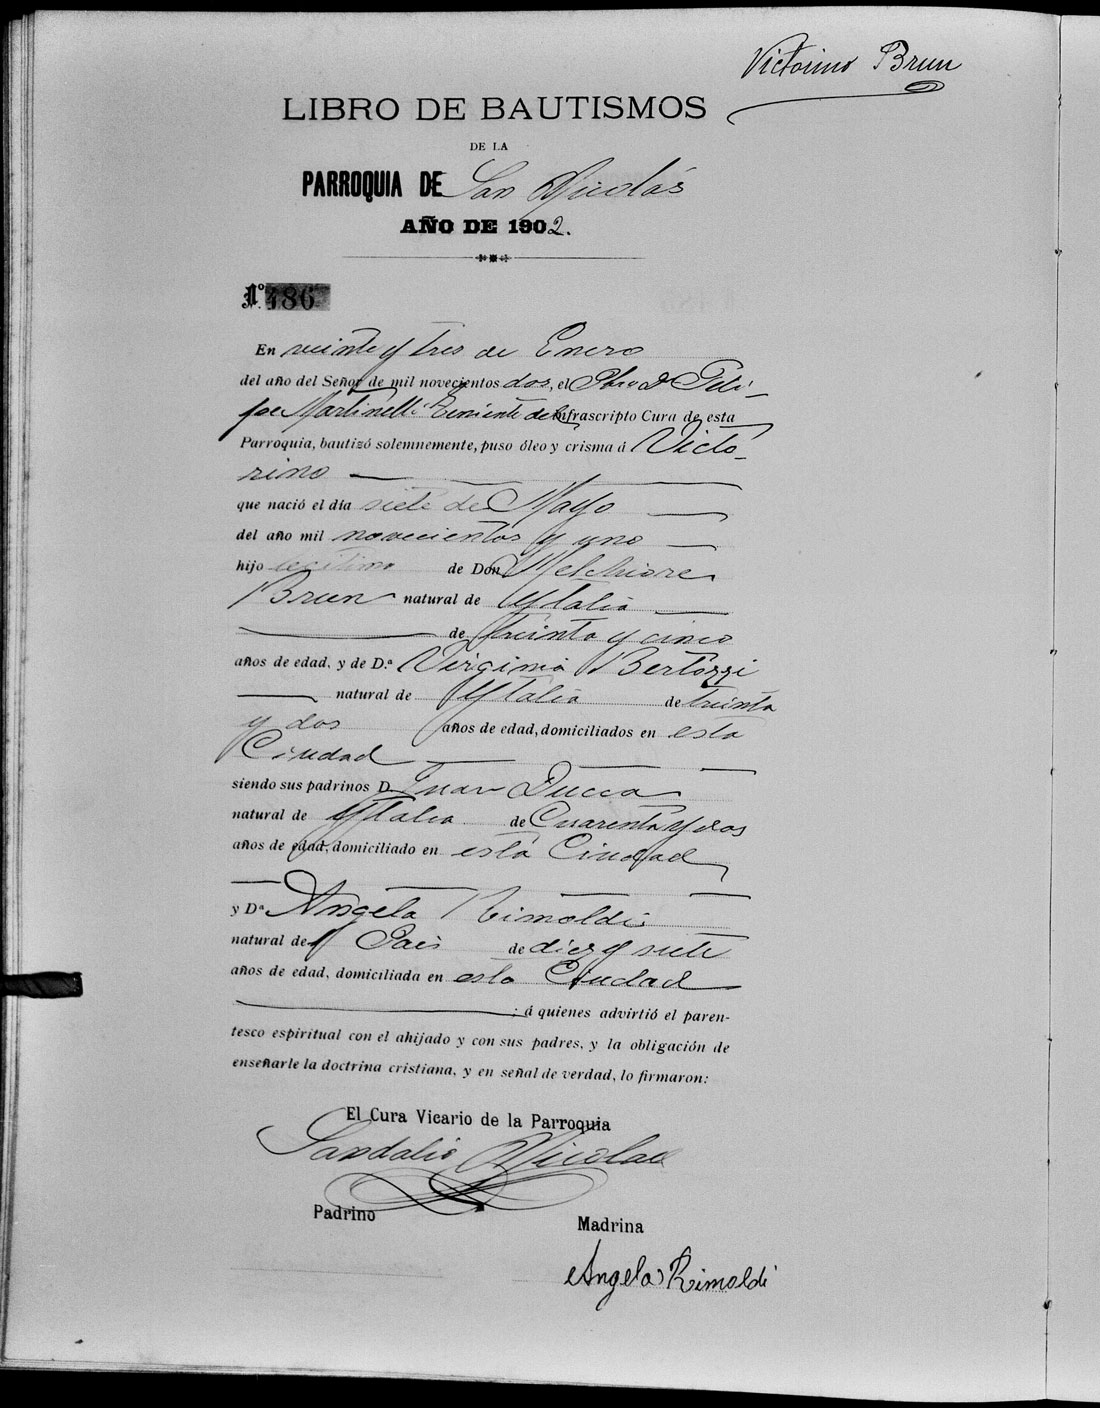 Victorino Brun
LIBRO DE BAUTISMOS
DE LA
PARROQUIA DE San Nicolás
AÑO DE 1902.
Nº 486
En veinte y tres de Enero
del año del Señor de mil novecientos dos, el Pbro D. Feli-
pe Martinelli Teniente del infrascripto Cura de esta
Parroquia, bautizó solemnemente, puso óleo y crisma á Victo-
rino
que nació el día siete de Mayo
del año mil novecientos y uno
hijo legitimo de Don Melchiore
Brun natural de Ytalia
de treinta y cinco
años de edad, y de D.ª Virginia Bertozzi
natural de Ytalia de treinta
y dos años de edad, domiciliados en esta
Ciudad
siendo sus padrinos D. Juan Ducca
natural de Ytalia de Cuarenta y dos
años de edad, domiciliado en esta Ciudad
y Dª Angela Rimoldi
natural de Pais de diez y siete
años de edad, domiciliada en esta Ciudad
; á quienes advirtió el paren-
tesco espiritual con el ahijado y con sus padres, y la obligación de
enseñarle la doctrina cristiana, y en señal de verdad, lo firmaron:
El Cura Vicario de la Parroquia
Sandalio Nicolau
Padrino
Madrina
Angela Rimoldi